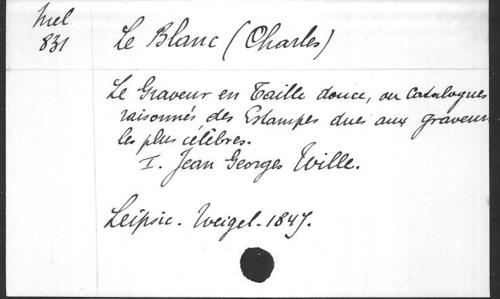 Mel
831
Le Blanc (Charles)
Le Graveur en Taille douce, ou Catalogues
raisonnés des Estampes dues aux graveurs
les plus célèbres.
I. Jean Georges Wille.
Leipsic. Weigel. 1847.